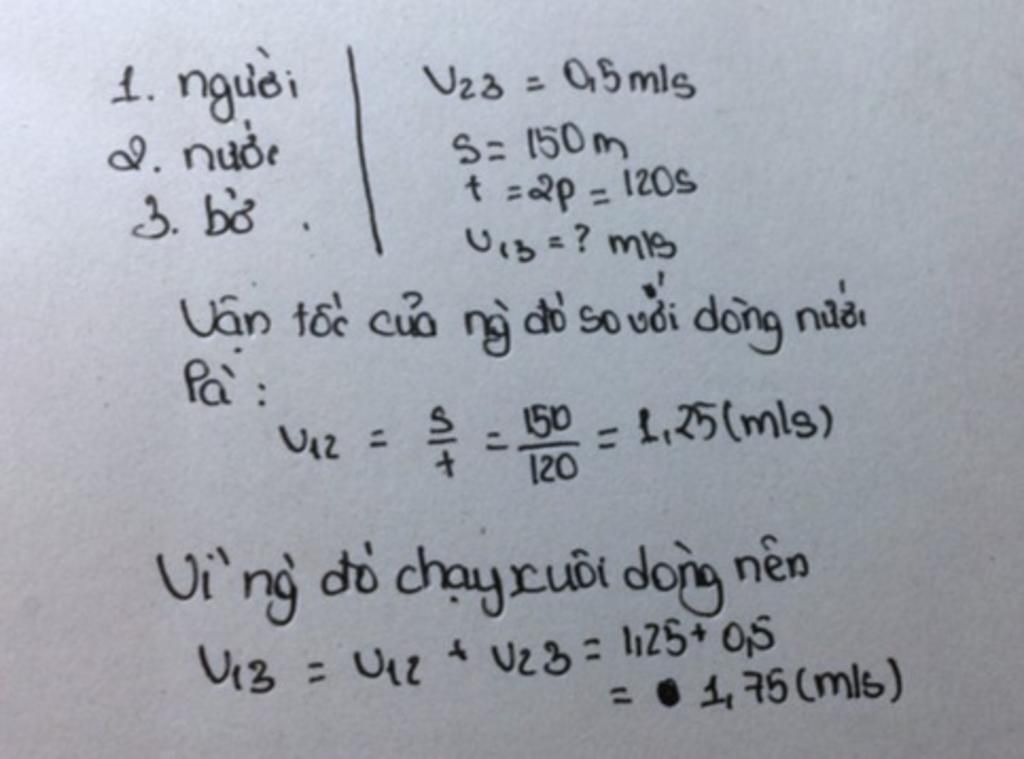 1. người
2. nước
3. bờ .
V23 = 0,5 m/s
S = 150 m
t = 2p = 120s
V13 = ? m/s
Vân tốc của ng̀ đó so với dòng nước
là :
V12 = S/t = 150/120 = 1,25 (m/s)
Vì ng̀ đó chạy xuôi dòng nên
V13 = V12 + V23 = 1,25 + 0,5
= 1,75 (m/s)